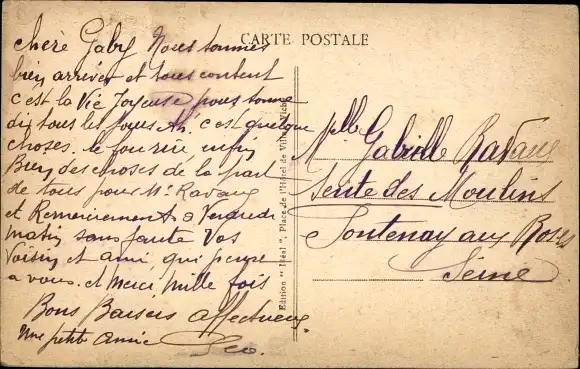 CARTE POSTALE
chère Gaby Nous sommes
bien arrivés et tous content
c'est la Vie Joyeuse nous somme
dis tous les jours Ah. c'est quelque
choses. le fou rire enfin
Bien des choses de la part
de tous pour Mr Ravaux
et Remerciement a Vendredi
matin sans faute Vos
Voisin et ami qui pense
a vous. et Merci mille fois
Bons Baisers affectueux
Une petite amie
Édition "Idéal", Place de l'Hôtel de Ville, Vichy
Melle Gabrielle Ravaux
Sente des Moulins
Fontenay aux Roses
Seine